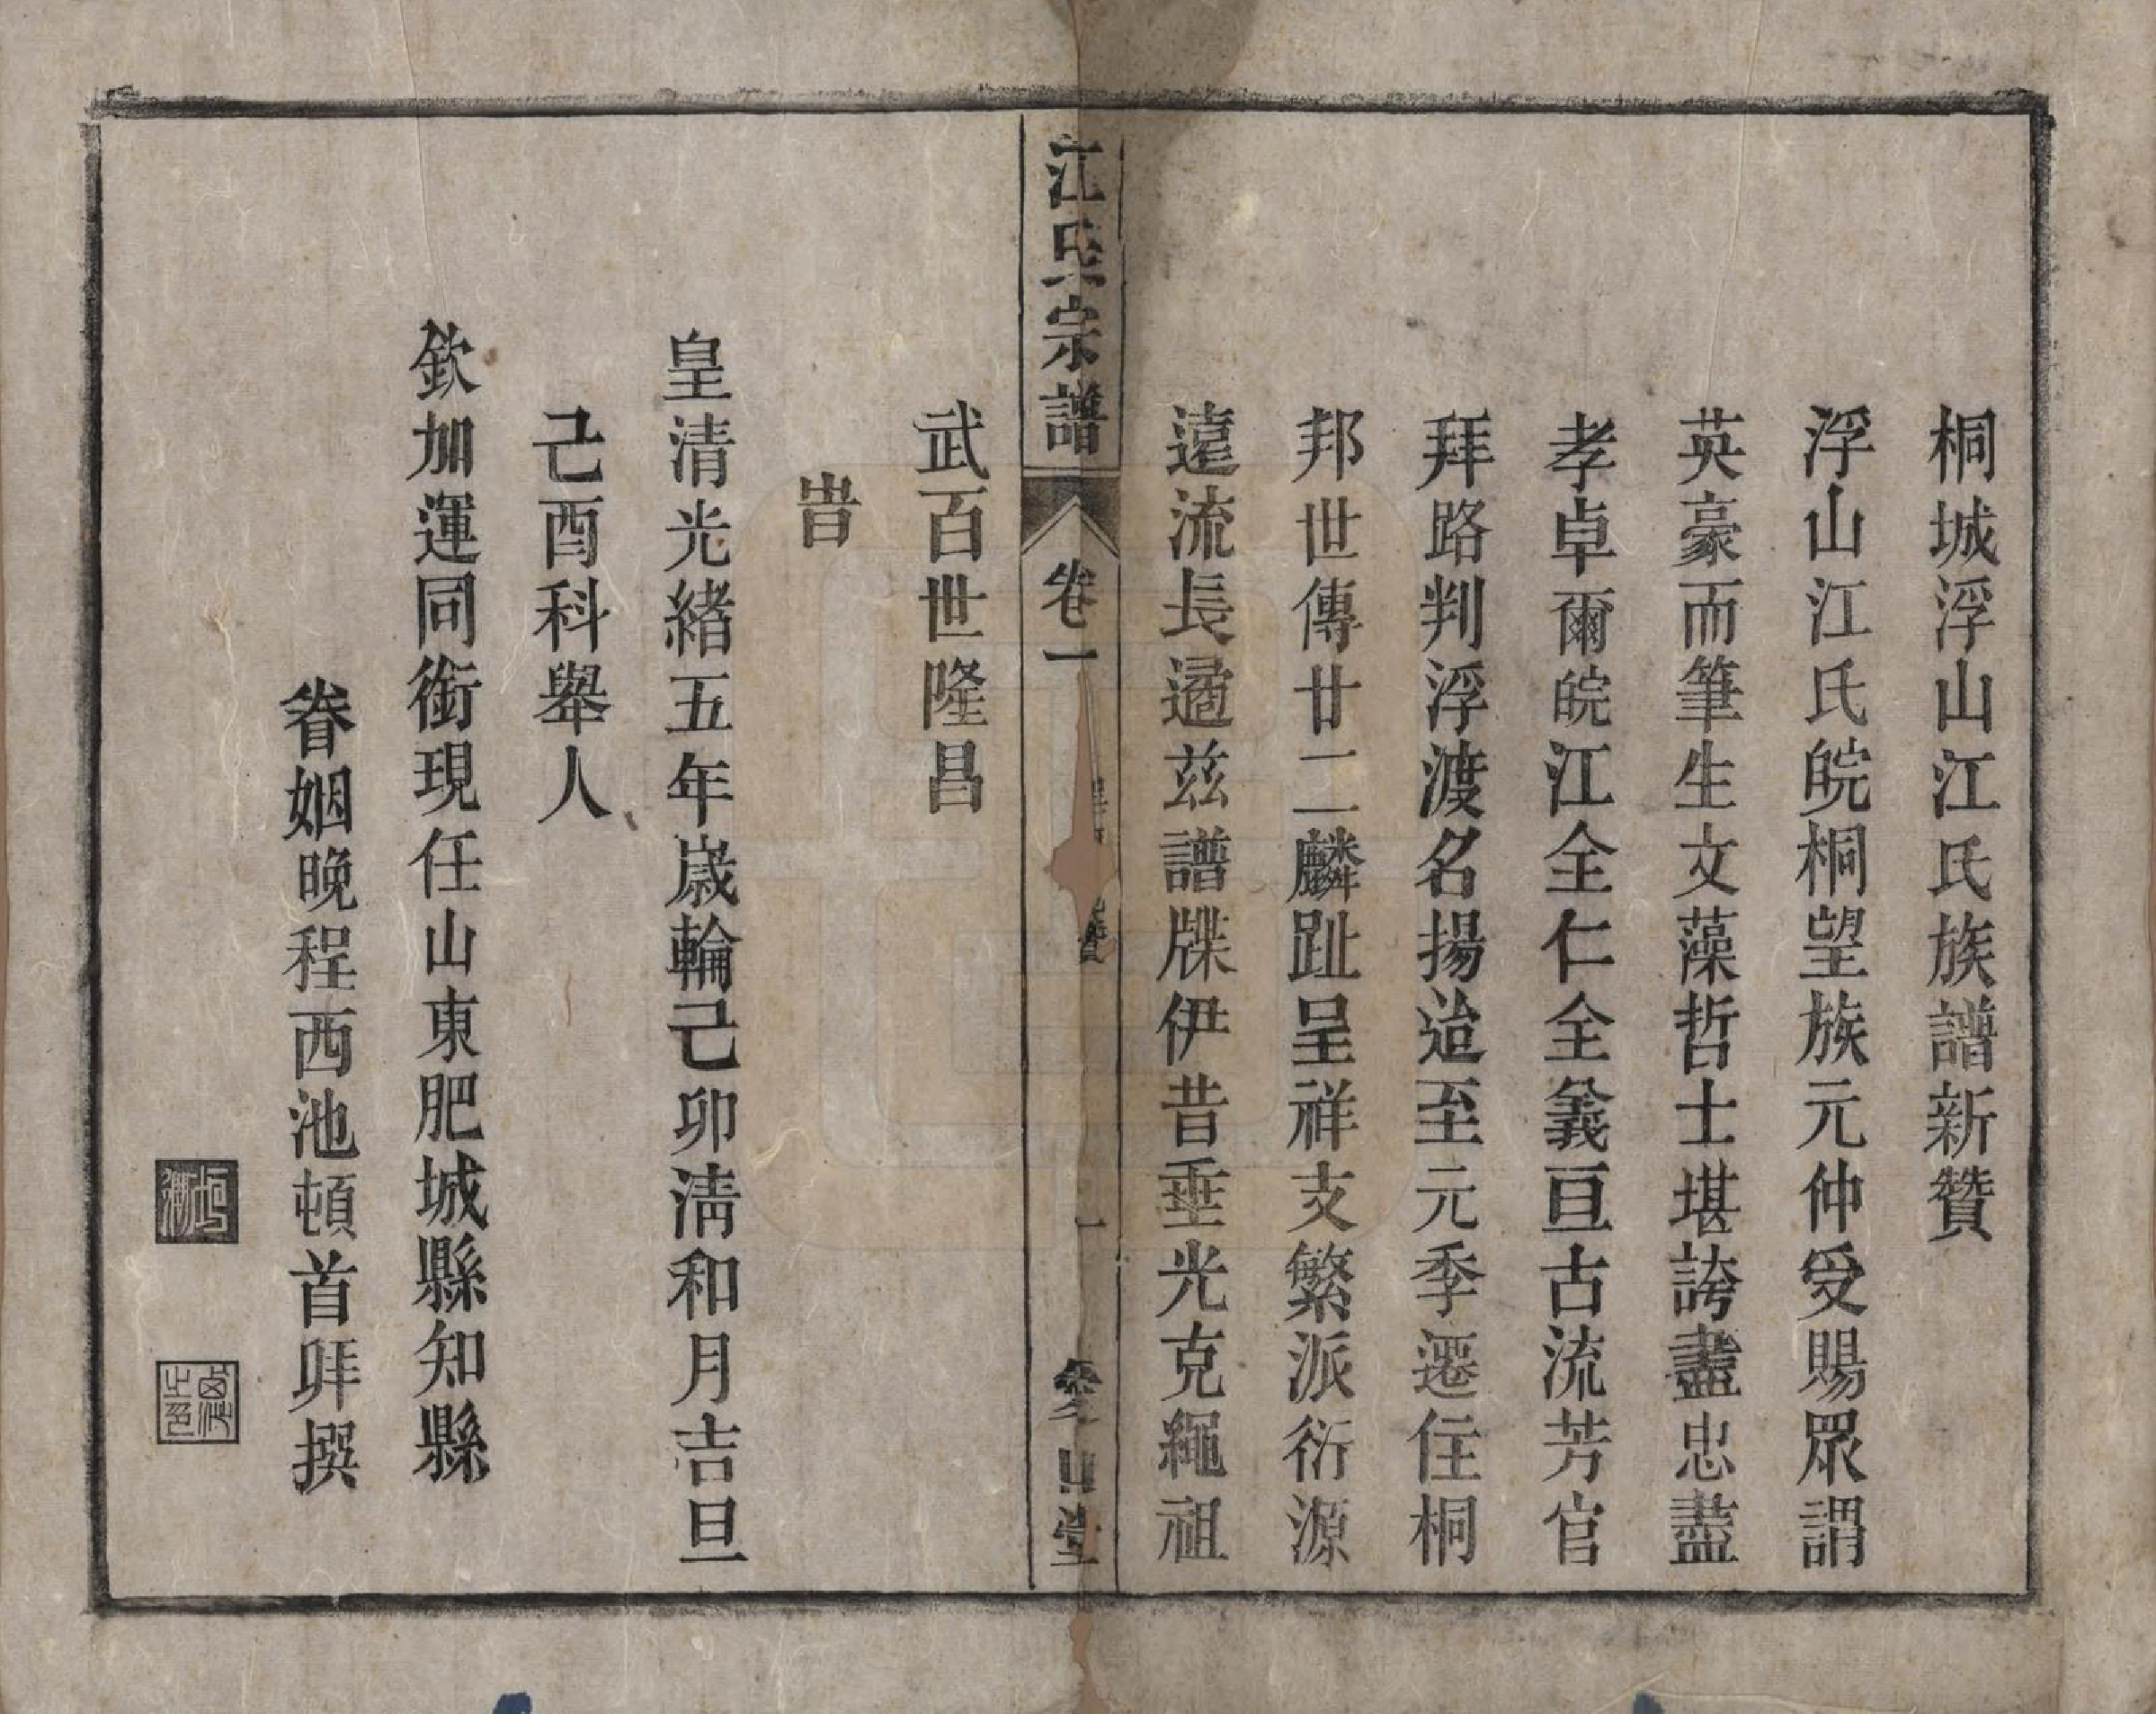 桐城浮山江氏族譜新贊
浮山江氏皖桐望族元仲受賜眾謂
英豪而筆生文藻哲士堪誇盡忠盡
孝卓爾皖江全仁全義亘古流芳官
拜路判浮渡名揚迨至元季遷住桐
邦世傳廿二麟趾呈祥支繁派衍源
遠流長適茲譜牒伊昔垂光克繩祖
江氏宗譜
卷一
一
堂
武百世隆昌
旹
皇清光緒五年歲輪己卯清和月吉旦
己酉科舉人
欽加運同銜現任山東肥城縣知縣
眷姻晚程西池頓首拜撰